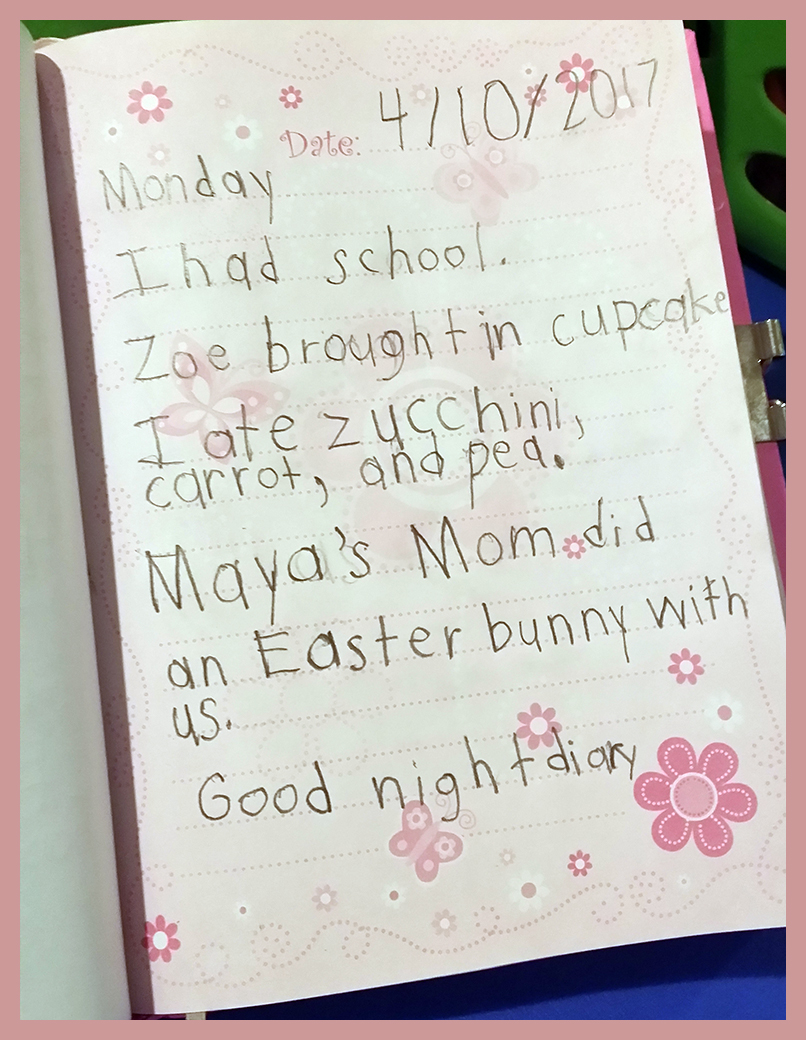 Date: 4/10/2017
Monday
I had school.
Zoe brought in cupcake
I ate zucchini,
carrot, and pea.
Maya's Mom did
an Easter bunny with
us.
Good night diary